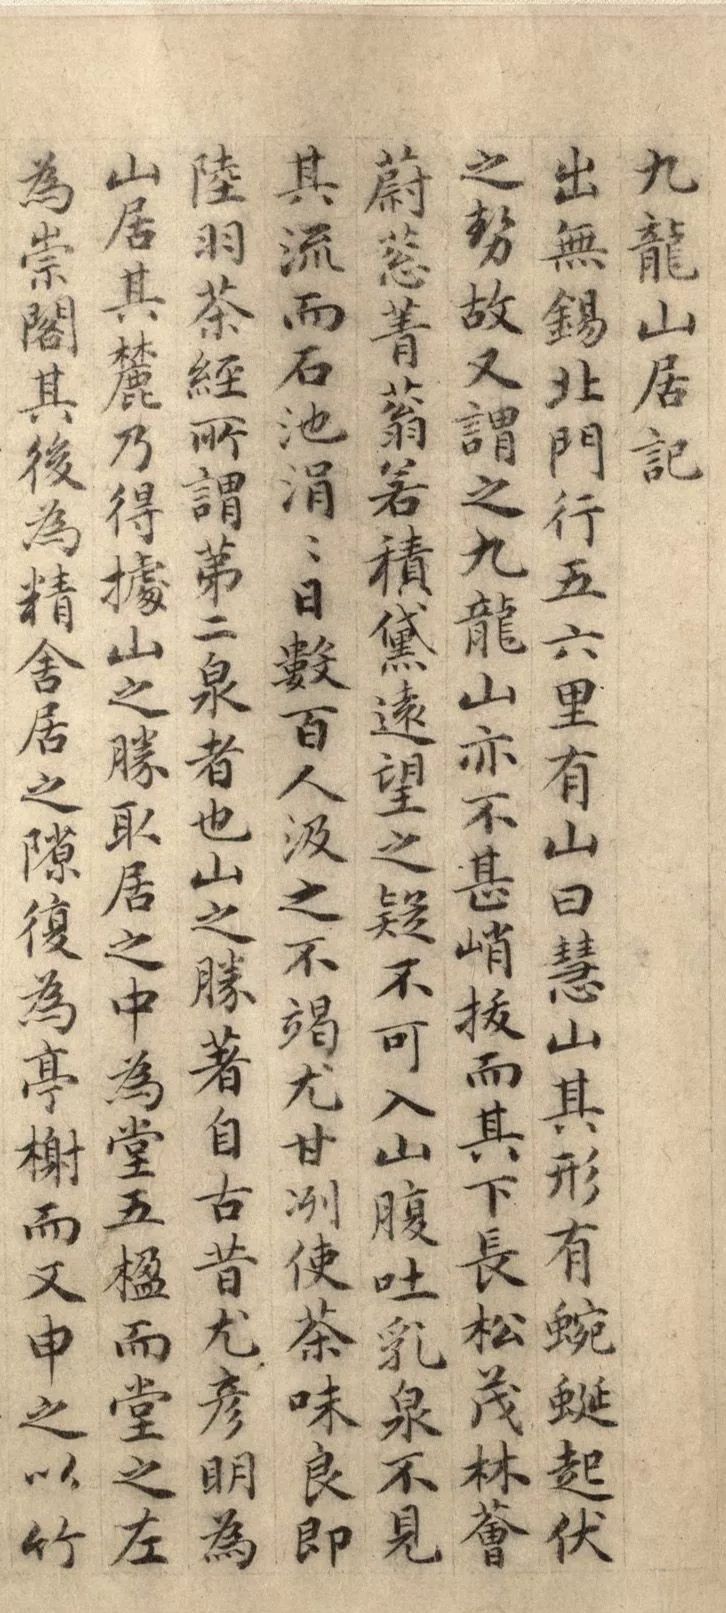 九龍山居記
出無錫北門行五六里有山曰慧山其形有蜿蜒起伏
之勢故又謂之九龍山亦不甚峭拔而其下長松茂林薈
蔚葱菁蓊若積黛遠望之疑不可入山腹吐乳泉不見
其流而石池涓〻日數百人汲之不竭尤甘冽使茶味良即
陸羽茶經所謂第二泉者也山之勝著自古昔尤彦明為
山居其麓乃得據山之勝取居之中為堂五楹而堂之左
為崇閣其後為精舍居之隙復為亭榭而又申之以竹